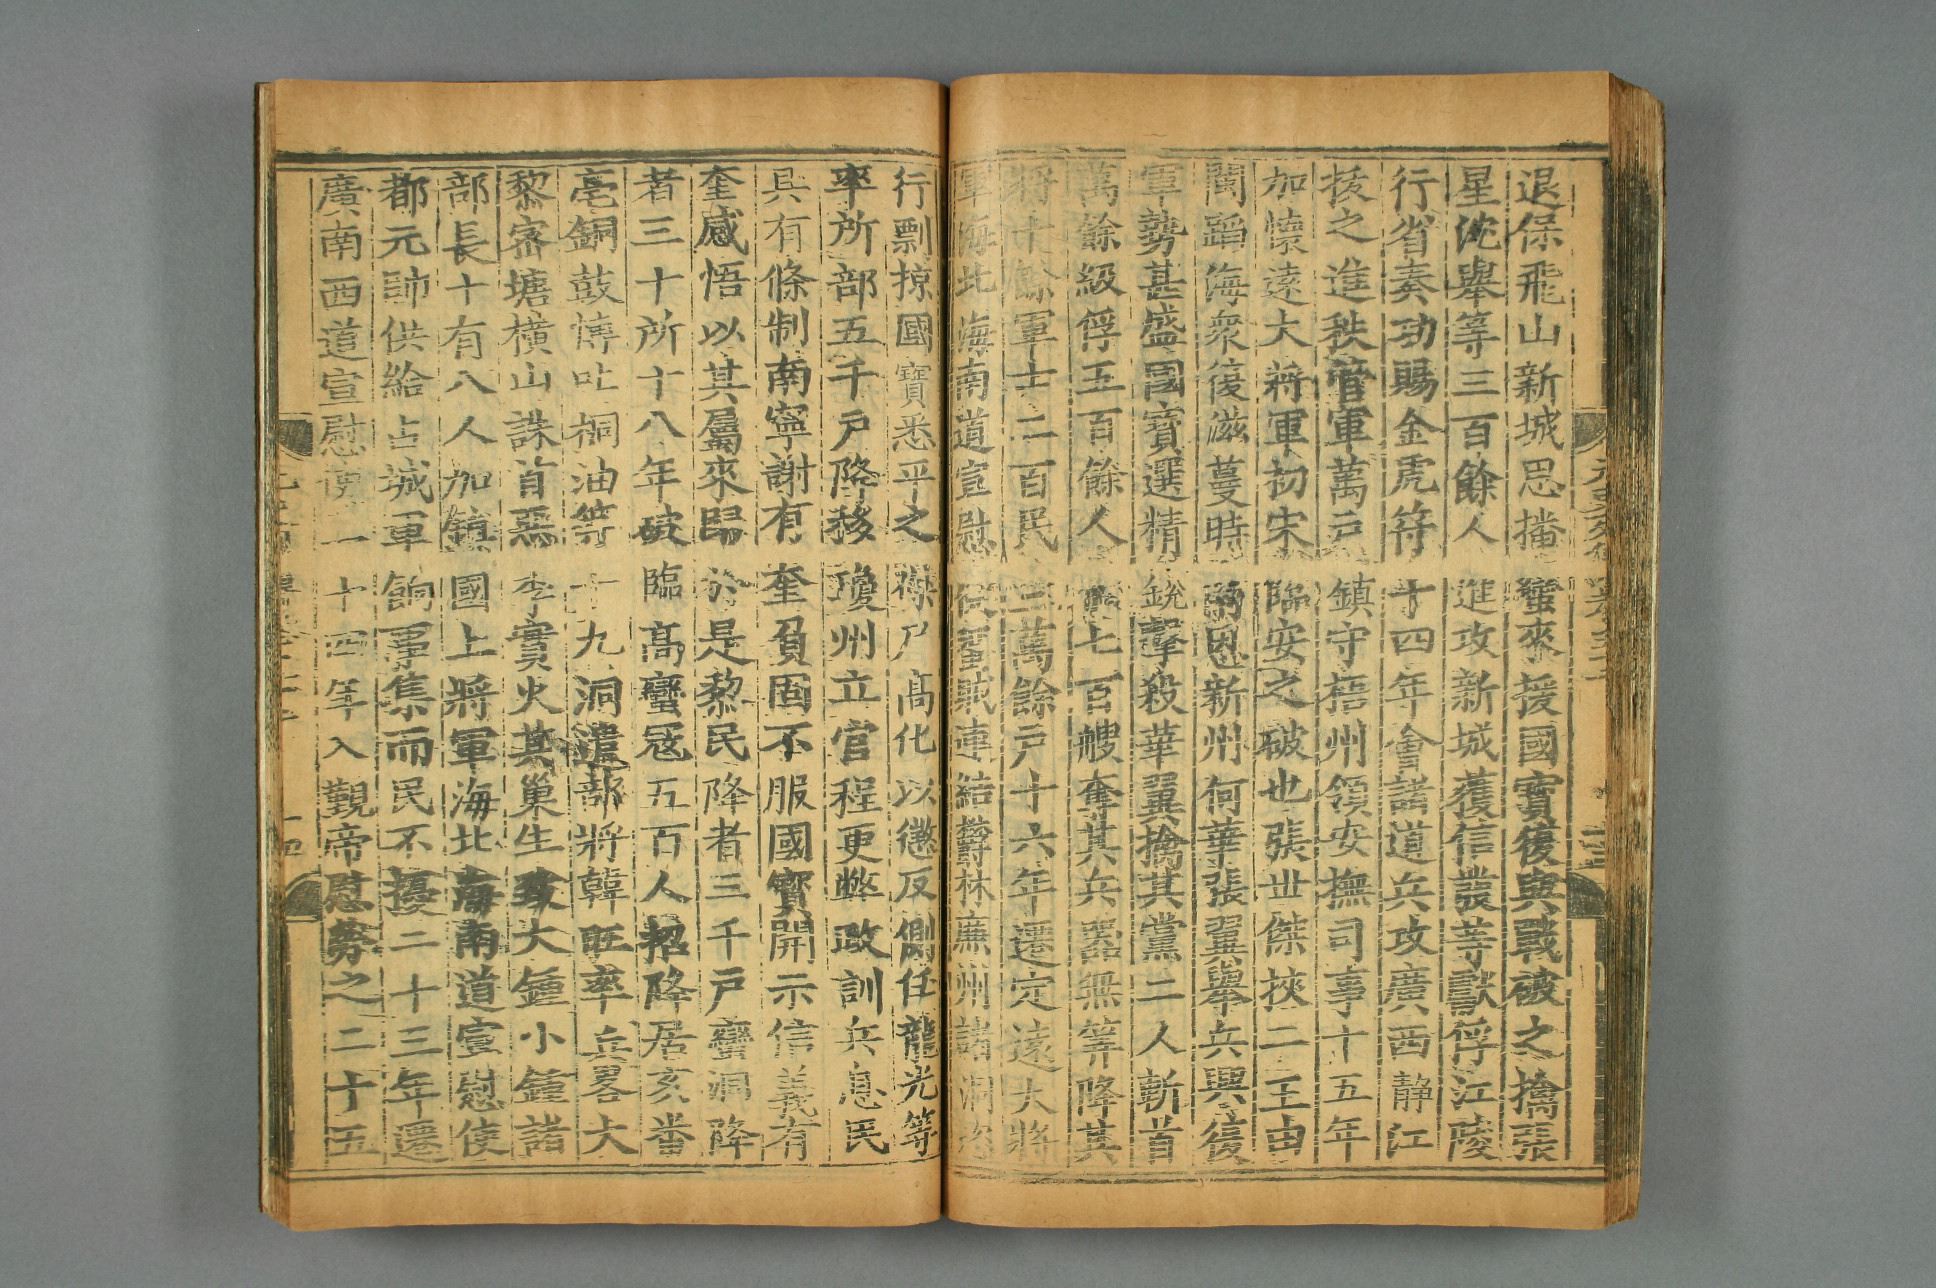 退保飛山新城思播蠻來援國寶復與戰破之擒張
星沈舉等三百餘人進攻新城獲信發等獻俘江陵
行省奏功賜金虎符十四年會諸道兵攻廣西靜江
拔之進秩管軍萬戶鎮守梧州領安撫司事十五年
加懷遠大將軍初宋臨安之破也張世傑挾二王由
閩蹈海衆復滋蔓時南恩新州何華張翼舉兵興復
軍勢甚盛國寶選精銳擊殺華翼擒其黨二人斬首
萬餘級俘五百餘人獲七百艘奪其兵噐無筭降其
將十餘軍士二百民三萬餘戶十六年遷定遠大將
軍海北海南道宣慰使蜑賊連結欝林廉州諸洞恣
行剽掠國寶悉平之磔尸高化以懲反側任龍光等
率所部五千戶降移瓊州立官程更弊政訓兵息民
具有條制南寧謝有奎負固不服國寶開示信義有
奎感悟以其屬來歸於是黎民降者三千戶蠻洞降
者三十所十八年破臨高蠻冦五百人招降居亥番
亳銅鼓博吐桐油等十九洞遣部將韓旺率兵畧大
黎密塘橫山誅首惡李實火其巢生致大鍾小鍾諸
部長十有八人加鎮國上將軍海北海南道宣慰使
都元帥供給占城軍餉事集而民不擾二十三年遷
廣南西道宣慰使二十四年入覲帝慰勞之二十五